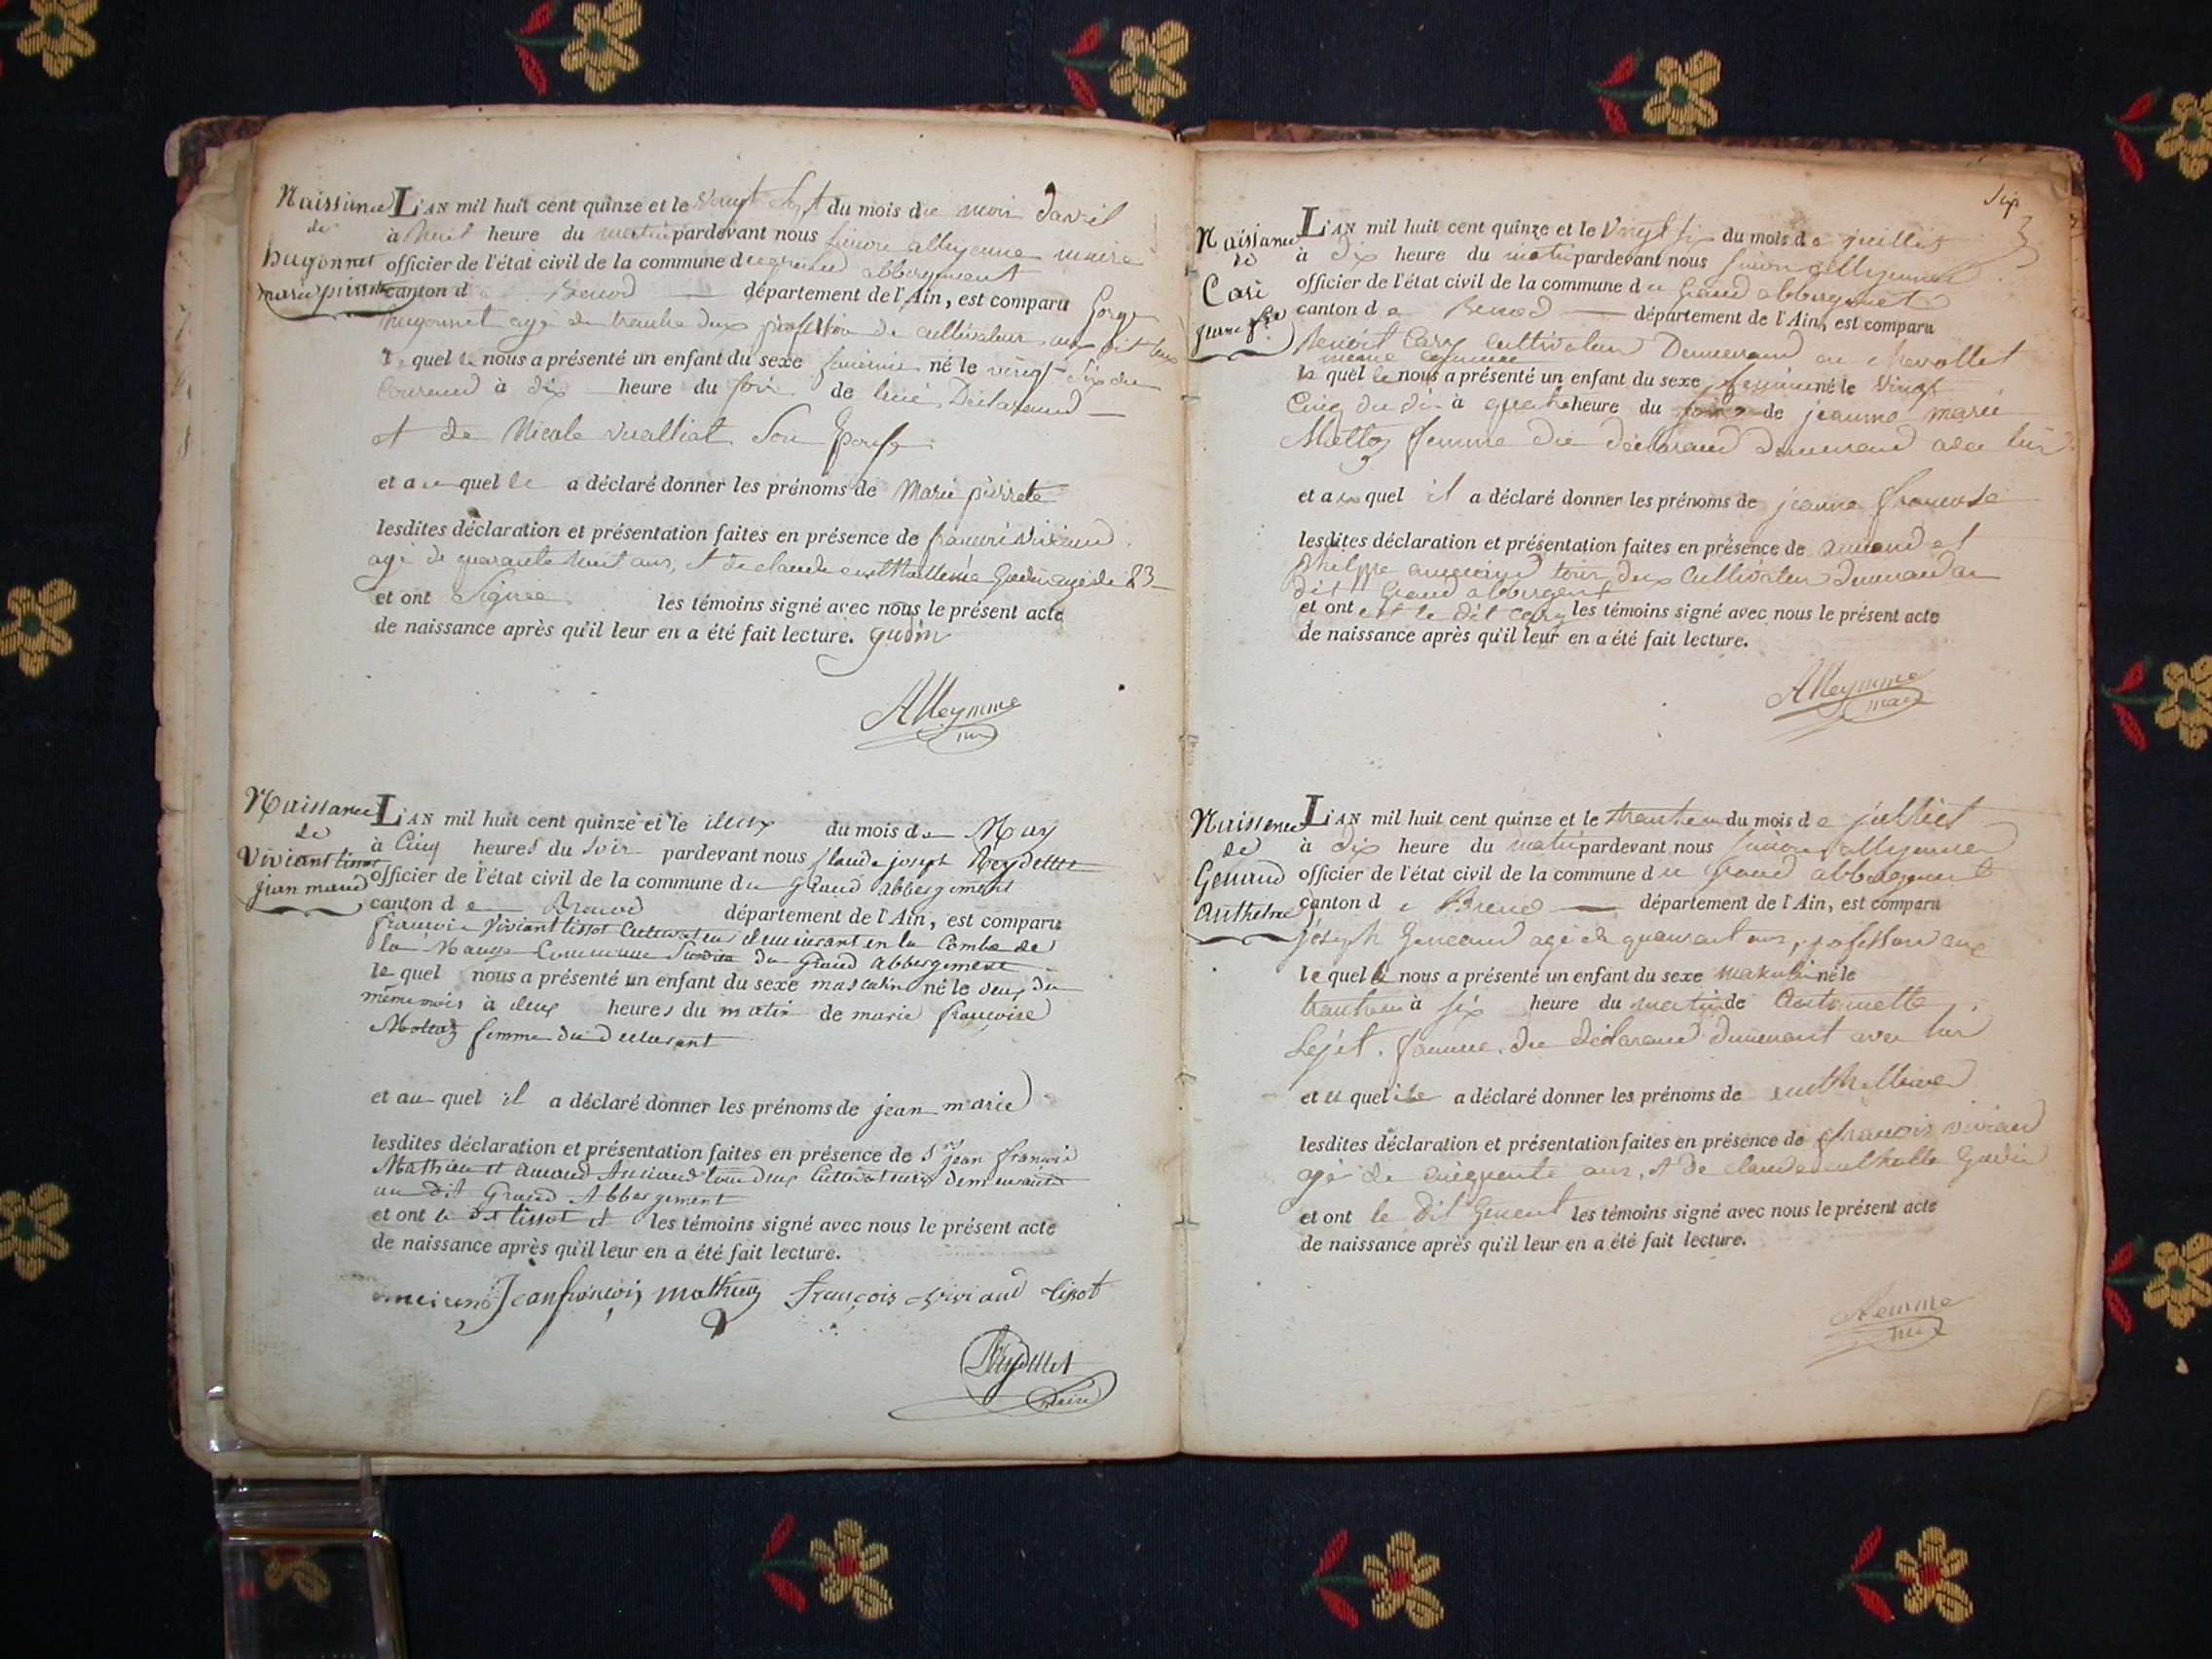 Naissance
de
huyonnet
marie pierrette
L'AN mil huit cent quinze et le vingt sept du mois de mois davril
à huit heure du matin pardevant nous Simon alleymme maire
officier de l'état civil de la commune du grand abbergement
canton d Brenod département de l'Ain, est comparu Gorge
huyonnet agé de trante deux profession de cultivateur au dit lieu
le quel le nous a présenté un enfant du sexe feminin né le vingt six du
Courand à dix heure du soir de lui Declarand
et de Nicole vualliat Son Epouse
et a u quel le a déclaré donner les prénoms de Marie pierrete
lesdites déclaration et présentation faites en présence de francoi viviand
agé de quarante huit ans, et de claude Gudin agé de 23
et ont Signée les témoins signé avec nous le présent acte
de naissance après qu'il leur en a été fait lecture. gudin
Alleymme
Naissance
de
Viviant tissot
jean marie
L'AN mil huit cent quinze et le deux du mois de May
à Cinq heures du soir pardevant nous Claude joseph Reydellet
officier de l'état civil de la commune du Grand Abbergement
canton de Brenod département de l'Ain, est comparu
francoi Viviant tissot Cultivateur demeurant en la Combe de
la Manges Commune Susdite du Grand abbergement
le quel nous a présenté un enfant du sexe masculin né le deux du
même mois à deux heures du matin de marie françoise
Moltaz femme du declarant
et au quel il a déclaré donner les prénoms de jean marie
lesdites déclaration et présentation faites en présence de Sr jean francoi
Mathieu et Amand Anciand tous deux Cultivateurs demeurants
au dit Grand Abbergement
et ont le dit tissot et les témoins signé avec nous le présent acte
de naissance après qu'il leur en a été fait lecture.
Jean françois mathieu françois viviand tissot
Reydellet
maire
Sept
3
Naissance
de
Cari
jeane fse
L'AN mil huit cent quinze et le vingt six du mois de juillet
à dix heure du matin pardevant nous Simon alleymme
officier de l'état civil de la commune du Grand abbergement
canton de Brenod département de l'Ain, est comparu
Benoit Cary cultivateur Demeurand au Chevollet
meme commune
le quel le nous a présenté un enfant du sexe feminin né le vingt
Cinq du dit à quatre heure du soir de jeanne marie
Mettoz femme du declarand demeurand avec lui
et a u quel il a déclaré donner les prénoms de jeanne francoise
lesdites déclaration et présentation faites en présence de amand et
Philippe anciand tous deux Cultivateur demeurand au
dit Grand abbergement
et ont et le dit Cary les témoins signé avec nous le présent acte
de naissance après qu'il leur en a été fait lecture.
Alleymme
maire
Naissance
de
Genand
Anthelme
L'AN mil huit cent quinze et le trante un du mois de julliet
à dix heure du matin pardevant nous Simon alleymme
officier de l'état civil de la commune du Grand abbergement
canton de Brenod département de l'Ain, est comparu
joseph Geneand agé de quarante ans,
le quel le nous a présenté un enfant du sexe maskulin né le
trante un à six heure du matin de Antoinette
Lejet. famme du déclarand dumeurant avec lui
et u quel ile a déclaré donner les prénoms de
lesdites déclaration et présentation faites en présence de francois viviand
agé de cinquente ans, et de claude Gudin
et ont le dit Genent les témoins signé avec nous le présent acte
de naissance après qu'il leur en a été fait lecture.